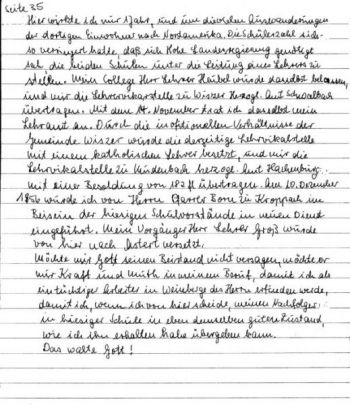 Seite 35
Hier wirkte ich nur 1 Jahr, und nun die vielen Auswanderungen
der dortigen Einwohner nach Nordamerika. Die Schülerzahl sich
so verringert hatte, daß sich Hohe Landesregierung genötigt
sah, die beiden Schulen unter die Leitung eines Lehrers zu
stellen. Mein College Herr Lehrer wurde daselbst belassen,
und mir die Lehrvikarstelle zu Herzogl. Amt Schwalbach
übertragen. Mit dem 14. November trat ich daselbst mein
Lehramt an. Durch die Verhältnisse der
Gemeinde wurde die derzeitige Lehrvikarstelle
mit einem katholischen Lehrer besetzt, und mir die
Lehrvikarstelle zu Kundenbach herzogl. Amt Hachenburg
mit einer Besoldung von 182 fl übertragen. Am 10. Dezember
1856 wurde ich von Herrn Pfarrer zu Kroppach im
Beisein der hiesigen Schulvorstände in neuen Dienst
eingeführt. Mein Vorgänger Herr Lehrer Groß wurde
von hier nach Astert versetzt.
Möchte mir Gott seinen Beistand nicht versagen, möchte er
mir Kraft und Muth in meinem Beruf, damit ich als
ein tüchtiger Arbeiter im Weinberge des Herrn erfunden werde,
damit ich, wenn ich von hier scheide, meinen Nachfolger
in hiesiger Schule in eben demselben guten Zustand,
wie ich ihn erhalten habe übergeben kann.
Das walte Gott!